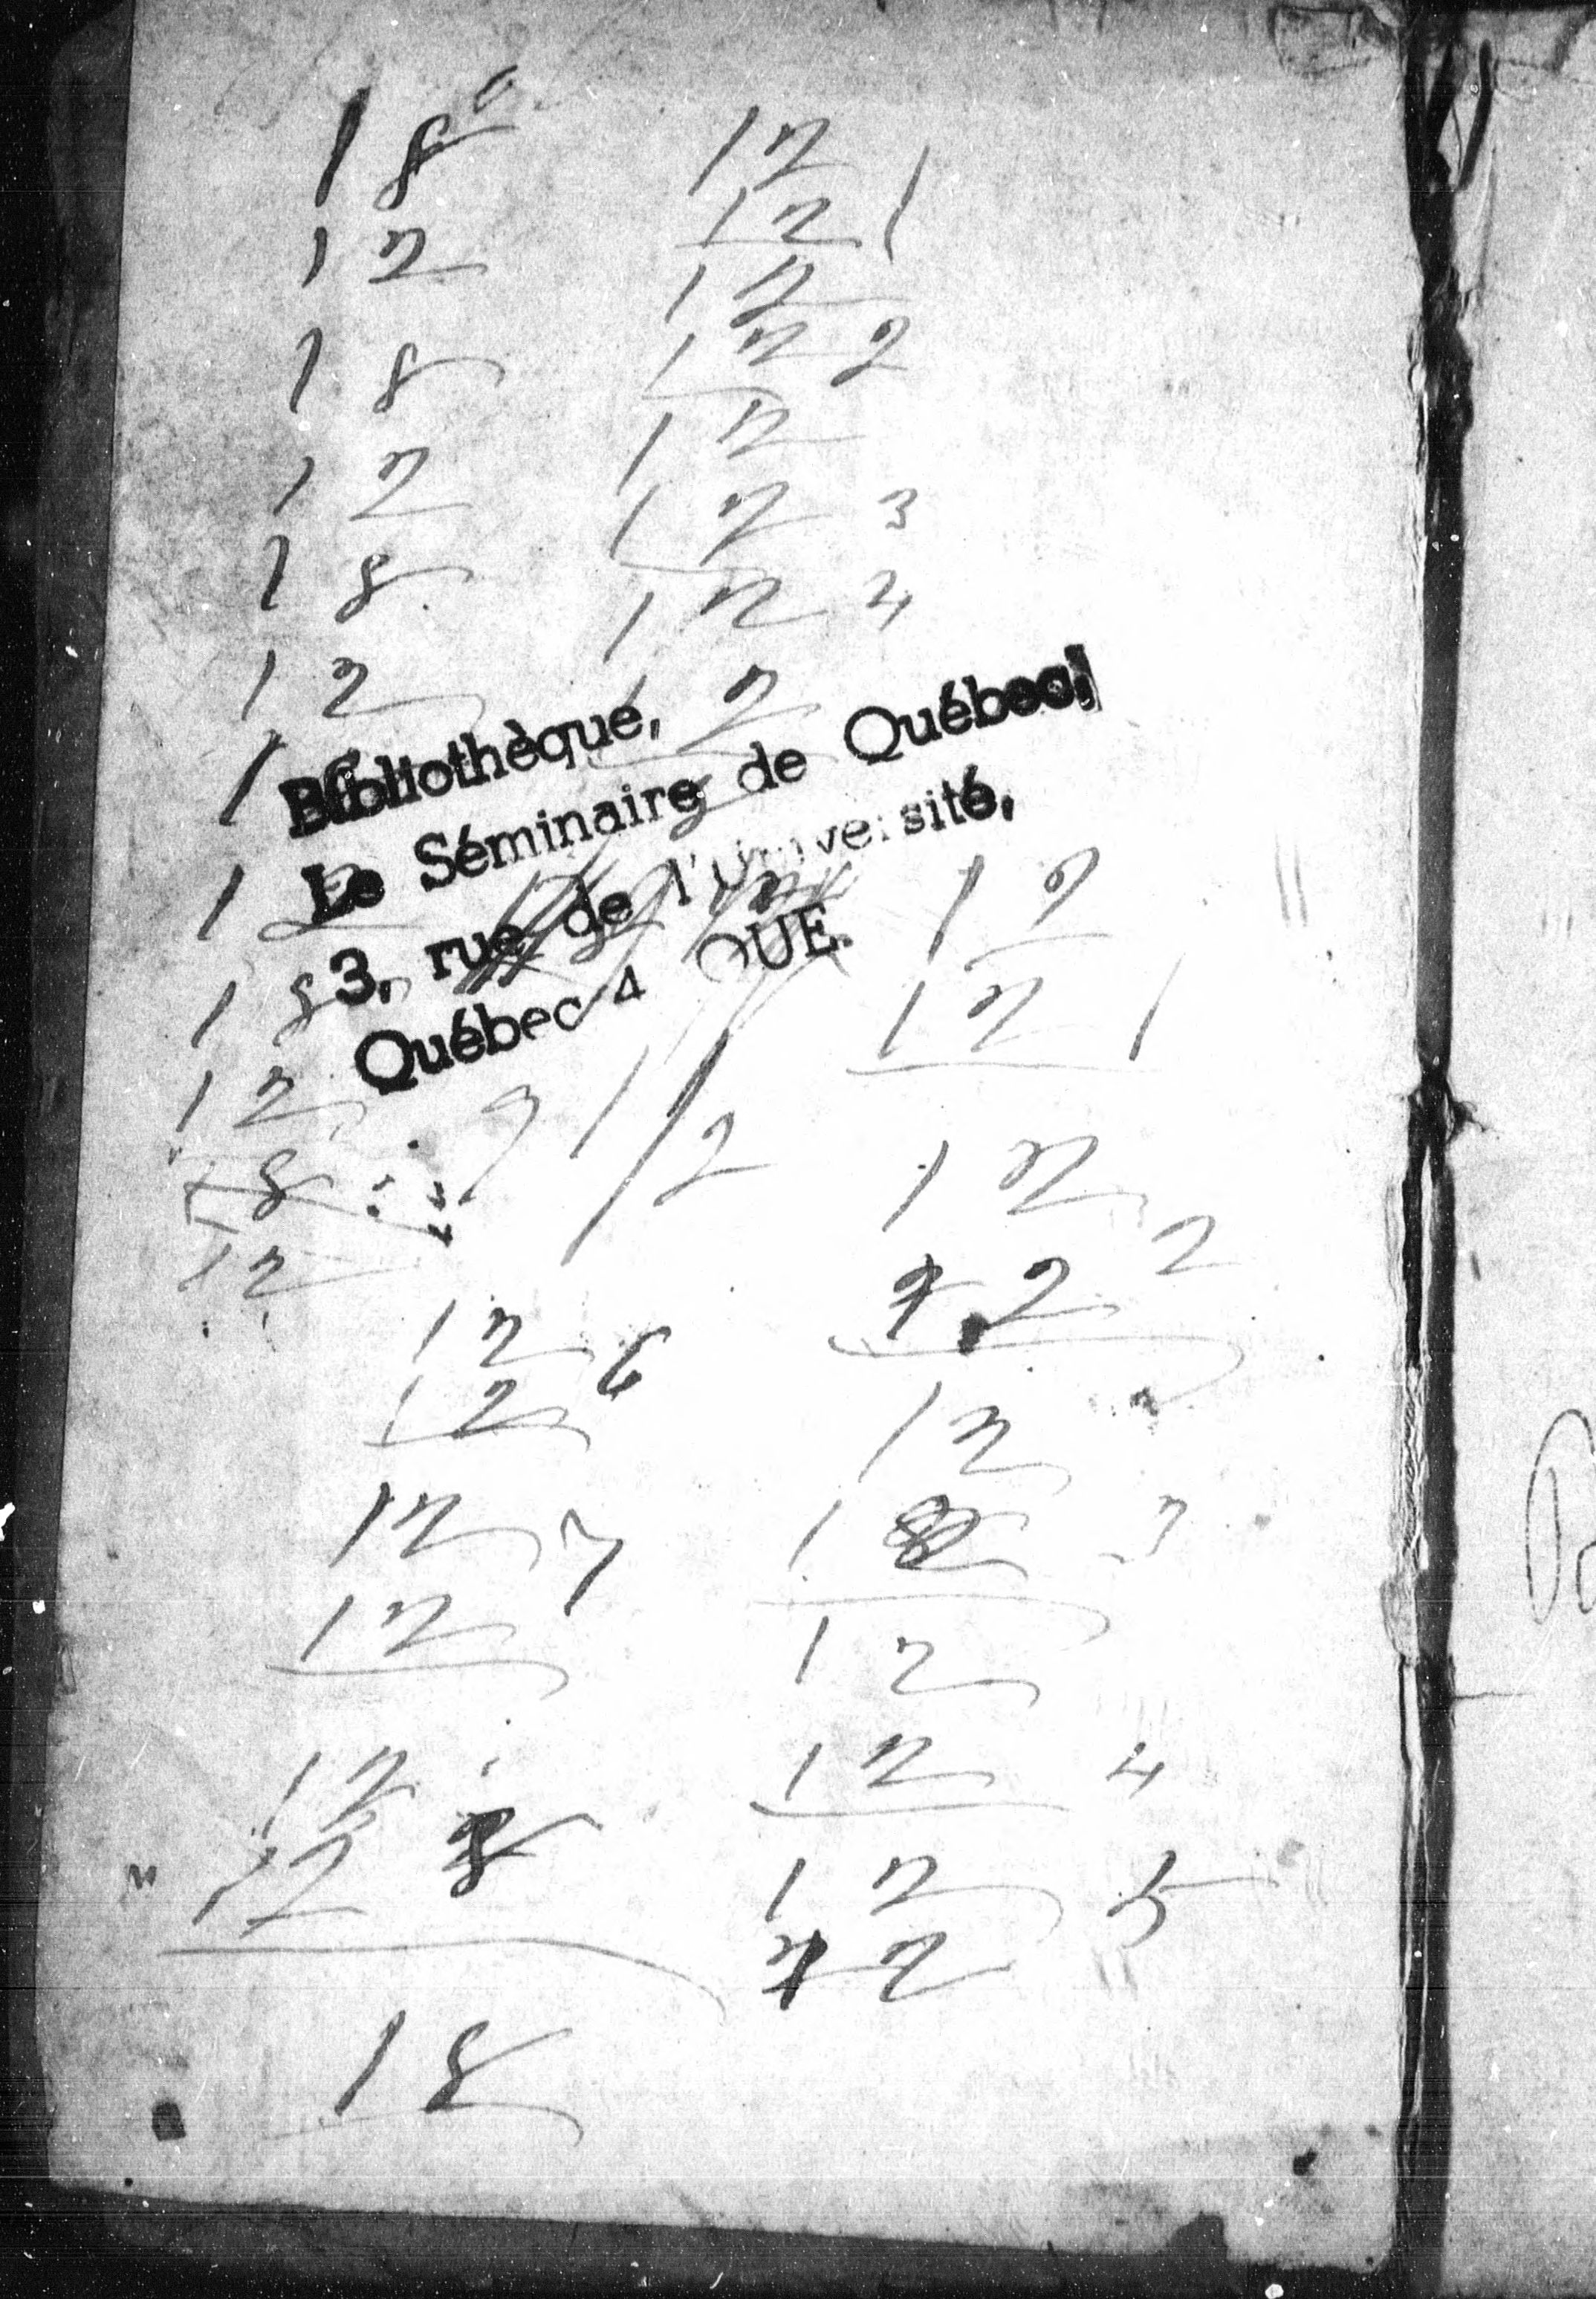 18
12
18
12
18
12
1
12
18
12
18
12
12
12 1
12
12 2
12
12 3
12 4
12
Bibliothèque,
Le Séminaire de Québec,
3, rue de l'Université,
Québec 4 QUE.
12
12 1
12
12 2
12
12 3
12
12 4
12 5
12
12 6
12
12 7
12
12
12 8
18